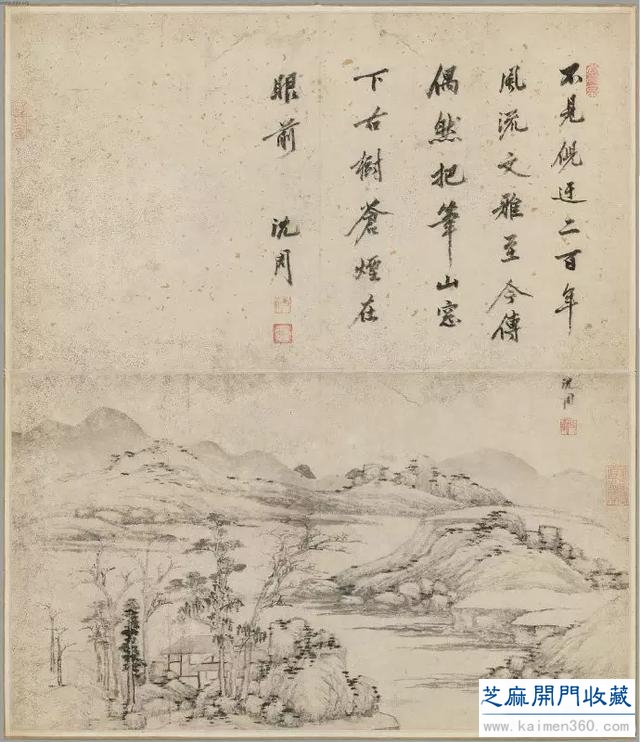 不見倪迂二百年
風流文雅至今傳
偶然把筆山窓
下古樹蒼煙在
眼前
沈周
沈周
芝麻開門收藏
www.kaimen360.com